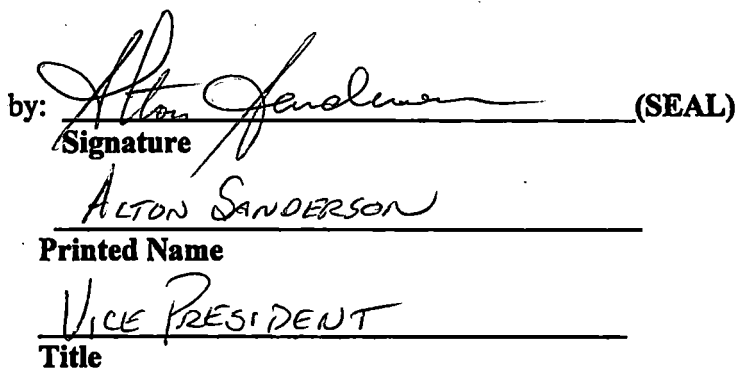 by: Alton Sanderson (SEAL)
Signature
ALTON SANDERSON
Printed Name
VICE PRESIDENT
Title